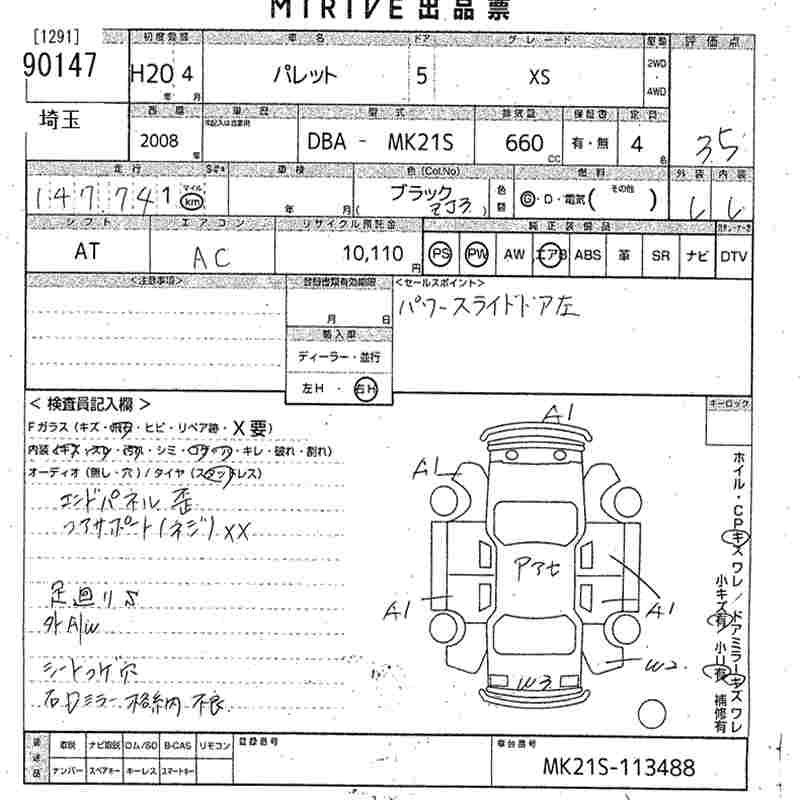 MIRIVE出品票
[1291] 初度登録 車名 ドア グレード 駆動 評価点
90147 H20 4 パレット 5 XS 2WD
年 月 4WD
埼玉 型式 排気量 定員
2008 DBA - MK21S 660 有・無 4 3.5
年 CC 名
走行 車検 色(Col.No) 燃料 外装 内装
147,741 マイル km 年 月 ブラック ZJ3 色替 G・D・電気( その他 )
シフト エアコン リサイクル預託金 純正装備品
AT AC 10,110 円 PS PW AW エアB ABS 革 SR ナビ DTV
<注意事項> 登録書類有効期限 <セールスポイント>
月 日 パワースライドドア左
輸入車
ディーラー・並行
左H ・ 右H
< 検査員記入欄 > キーロック
Fガラス(キズ・飛石・ヒビ・リペア跡・X要)
内装(キズ・スレ・汚れ・シミ・コゲ・穴・キレ・破れ・割れ)
オーディオ(無し・穴)/タイヤ(スタッドレス)
エンドパネル 歪
コアサポート(ネジ)XX
足廻りS
外A/W
シートコゲ穴
右Dミラー格納不良
A1
A1
A1
A1
W2
W3
ホイル・CPキズ ワレ / ドアミラーキズ ワレ
小キズ有 / 小U有 補修有
装送品 取説 ナビ取説 ロム/SD B-CAS リモコン 登録番号 車台番号
ナンバー スペアキー キーレス スマートキー MK21S-113488